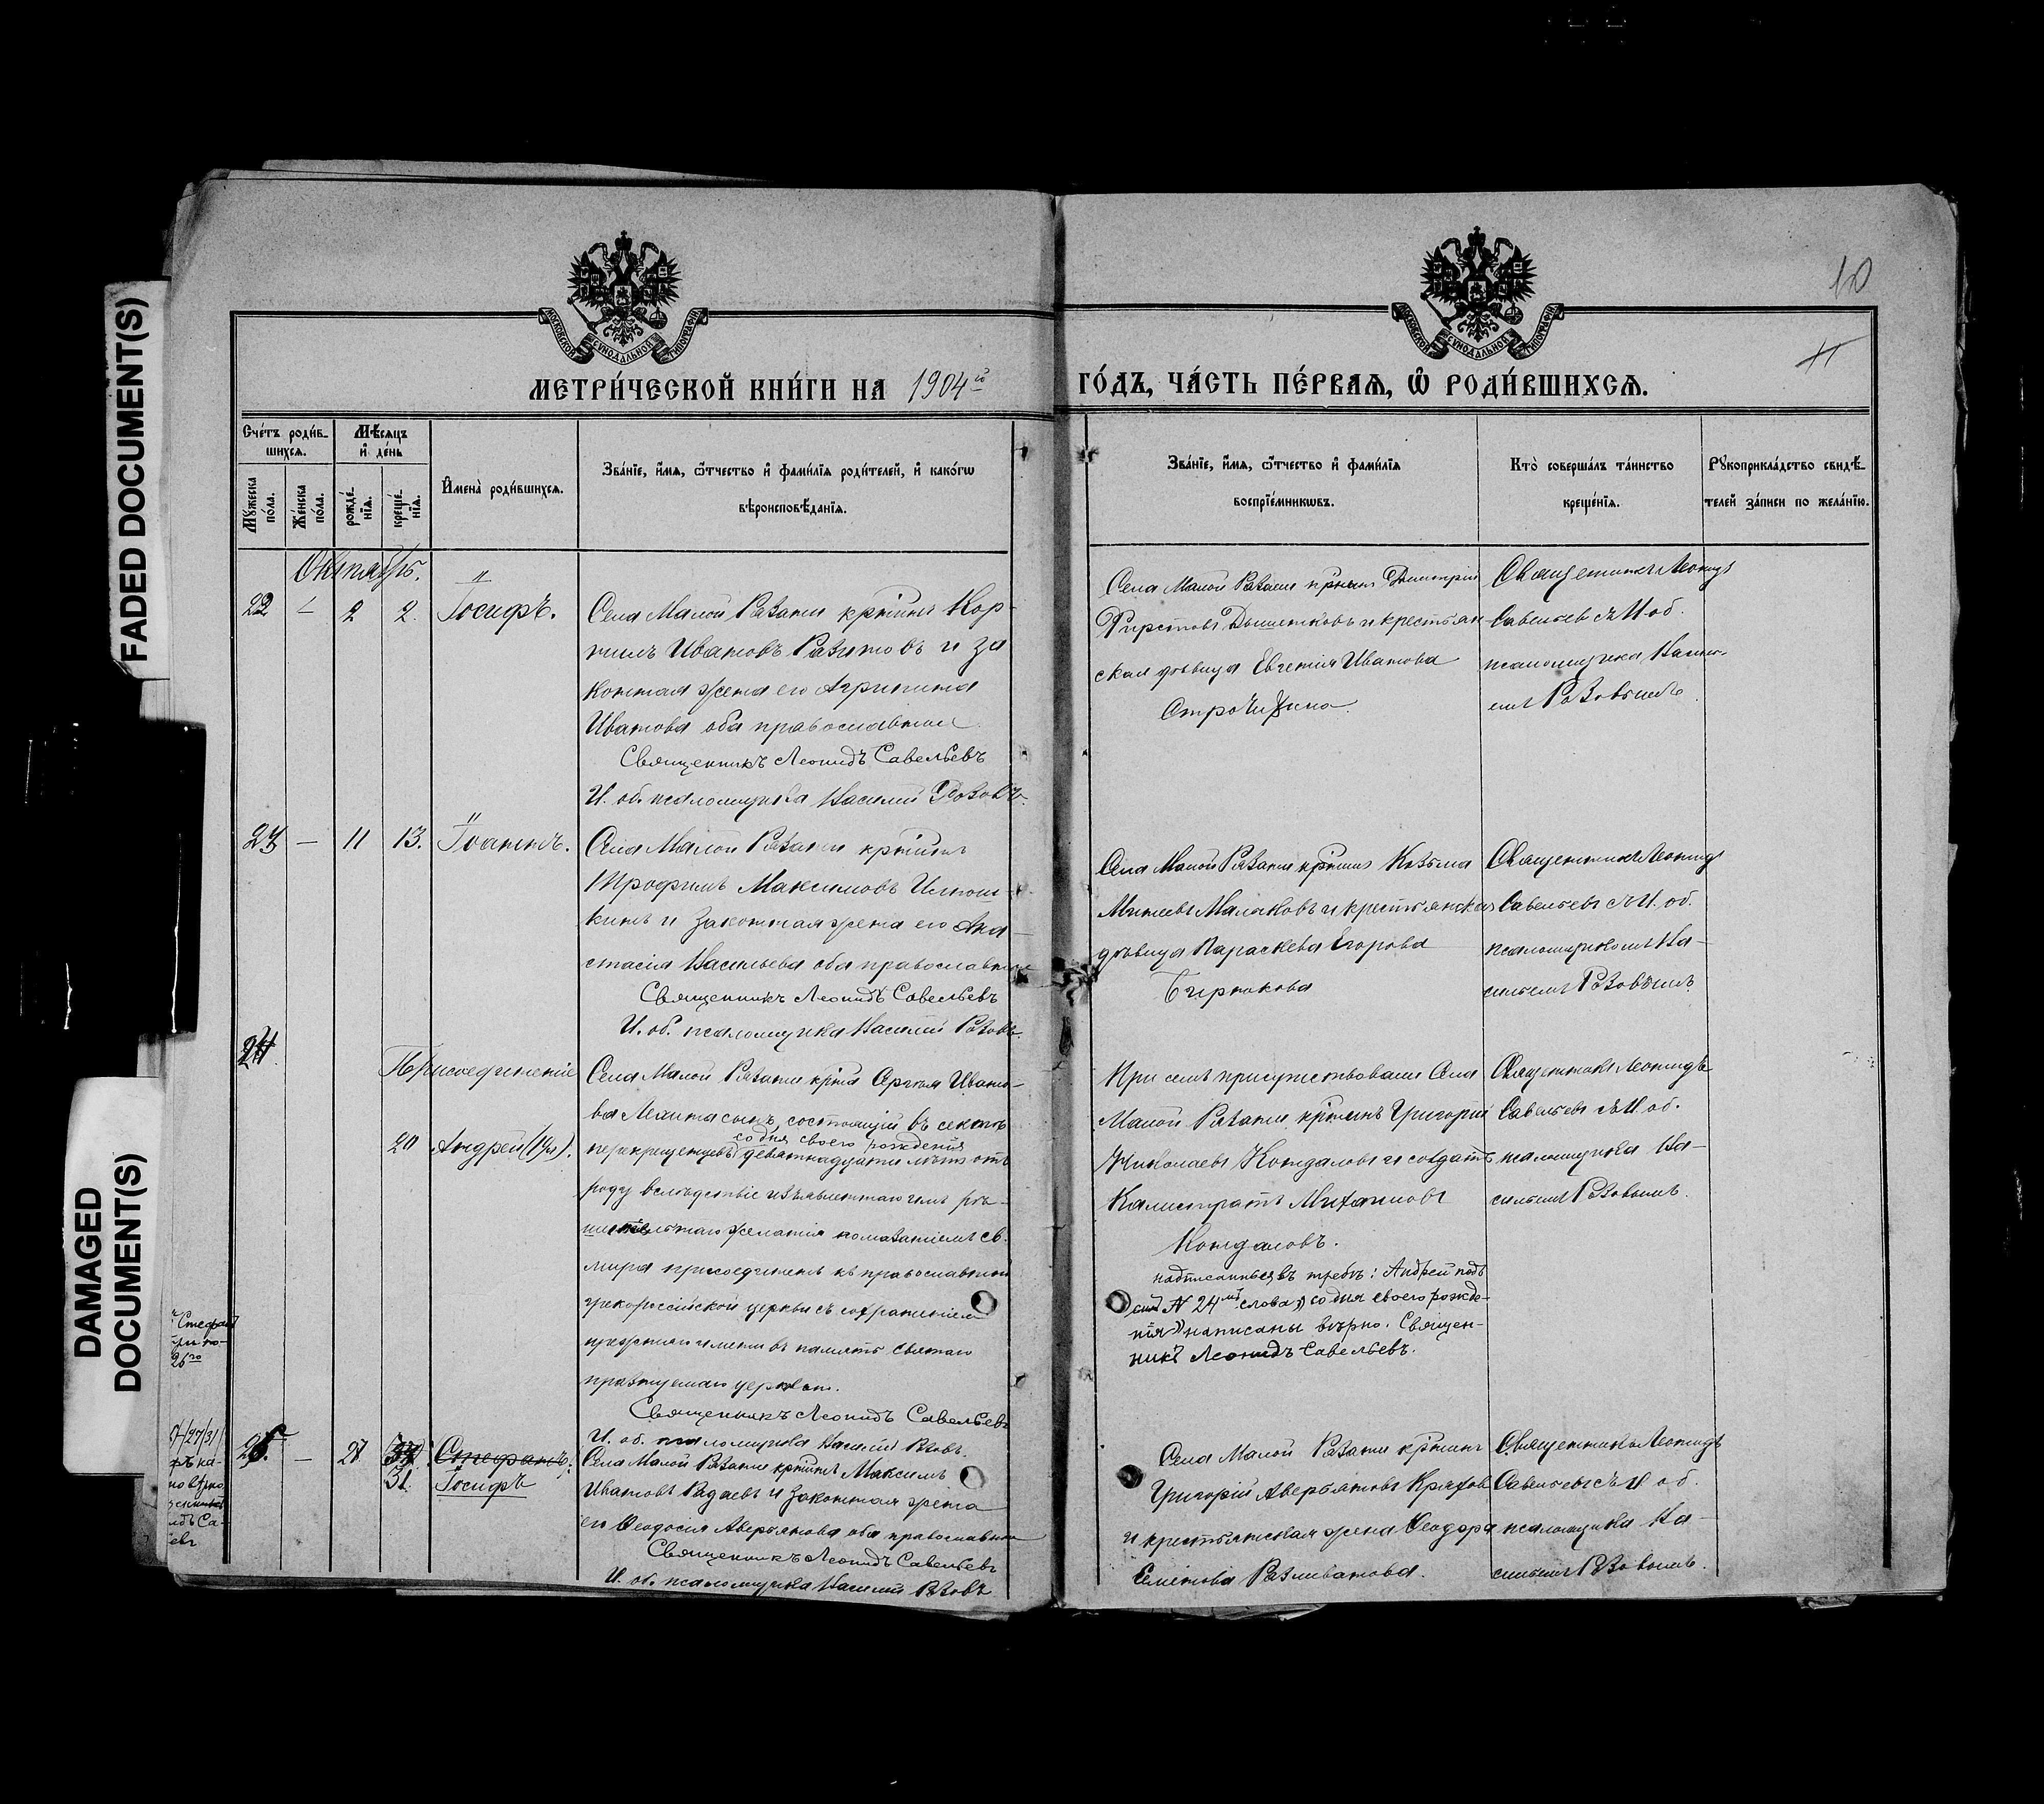 FADED DOCUMENT(S)
DAMAGED
DOCUMENT(S)
10
11
МОСКОВСКОЙ СѴНОДАЛЬНОЙ ТИПОГРАФІИ
МОСКОВСКОЙ СѴНОДАЛЬНОЙ ТИПОГРАФІИ
МЕТРИ́ЧЕСКОЙ КНИ́ГИ НА 1904й ГО́ДЪ, ЧА́СТЬ ПЕ́РВАЯ, Ѡ҆ РОДИ́ВШИХСЯ.
Сче́тъ роди́в-
шихся.
Мꙋ́жеска
по́ла.
Же́нска
по́ла.
Мѣ́сяцъ
и҆ де́нь
рожде́-
нїя.
креще́-
нїя.
И҆мена̀ роди́вшихся.
Зва́нїе, и҆́мя, ѻ҆́тчество и҆ фами́лїя роди́телей, и҆ како́гѡ
вѣроисповѣ́данїя.
Зва́нїе, и҆́мя, ѻ҆́тчество и҆ фами́лїя
воспрїе́мникѡвъ.
Кто̀ соверша́лъ та́инство
креще́нїя.
Рꙋкоприкла́дство свидѣ́-
телей за́писи по жела́нїю.
Октябрь.
22 – 2 2. Іосифъ.
Села Малой Рязани крнинъ Кор-
нилъ Ивановъ Разитовъ и за
конная жена его Агрипина
Иванова оба православные
Священникъ Леонидъ Савельевъ
И. об. псаломщика Василий Розовъ.
Села Малой Рязани Димитрій
и крестьян-
ская дѣвица Евгенія Иванова
Священникъ Леонидъ
Савельевъ съ И. об.
псаломщика Васи-
Розовымъ
23 – 11 13. Іоаннъ.
Села Малой Рязани крнинъ
Трофимъ Максимовъ
кинъ и законная жена его Ана-
стасія Васильева оба православные
Священникъ Леонидъ Савельевъ
И. об. псаломщика Василий Розовъ.
Села Малой Рязани крнинъ Козьма
Малаховъ и крестьянская
дѣвица Параскева Егорова
Бирюкова
Священникъ Леонидъ
Савельевъ съ И. об.
псаломщикомъ Ва-
сильемъ Розовымъ
24
Присоединеніе
20 Андрей (19л).
Села Малой Рязани крнина Сергея Ивано-
ва сынъ, состоящій въ сектѣ
со дня своего рожденія
перекрещенцевъ девятнадцати лѣтъ отъ
роду вслѣдствіе изъявленнаго имъ рѣ-
шительнаго желанія помазаніемъ св.
мира присоединенъ къ православной
грекороссійской церкви съ сохраненіемъ
прежняго имени въ память святаго
празнуемаго церковію.
Священникъ Леонидъ Савельевъ
И. об. псаломщика Василий Розовъ.
При семъ присутствовали Села
Малой Рязани крнинъ Григорій
Николаевъ Кондаловъ и солдатъ
Калистратъ Михаиловъ
Кондаловъ.
надписанныя въ требѣ: Андрей подъ
№ 24мъ слова „со дня своего рожде-
нія“ написаны вѣрно. Священ-
никъ Леонидъ Савельевъ.
Священникъ Леонидъ
Савельевъ съ И об.
псаломщика Ва-
сильемъ Розовымъ.
25. – 27 31. Стефанъ.
Іосифъ
Села Малой Рязани крнинъ Максимъ
Ивановъ Радаевъ и законная жена
его Феодосія Аверьянова оба православные
Священникъ Леонидъ Савельевъ
И. об. псаломщика Василий Розовъ
Села Малой Рязани крнинъ
Григорій Аверьяновъ
и крестьянская жена Феодора
Семенова Разливанова.
Священникъ Леонидъ
Савельевъ съ И об.
псаломщика Ва-
сильемъ Розовымъ.